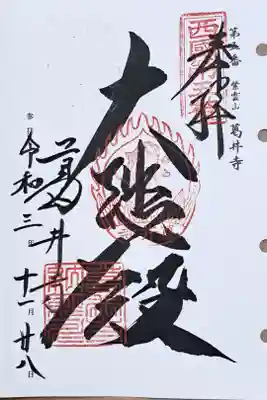 第五番 紫雲山 葛井寺
奉拝
西國第五番
大悲殿
葛井寺
令和三年十一月廿八日